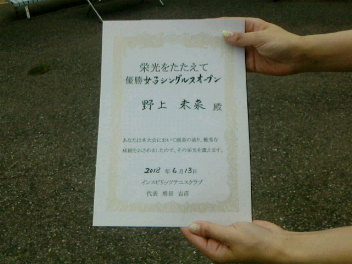 栄光をたたえて
優勝 女子シングルスオープン
野上 殿
あなたは本大会において頭書の通り、優秀な
成績をおさめましたので、その栄光を讃えます。
2018 年 6 月 13 日
インスピリッツテニスクラブ
代表